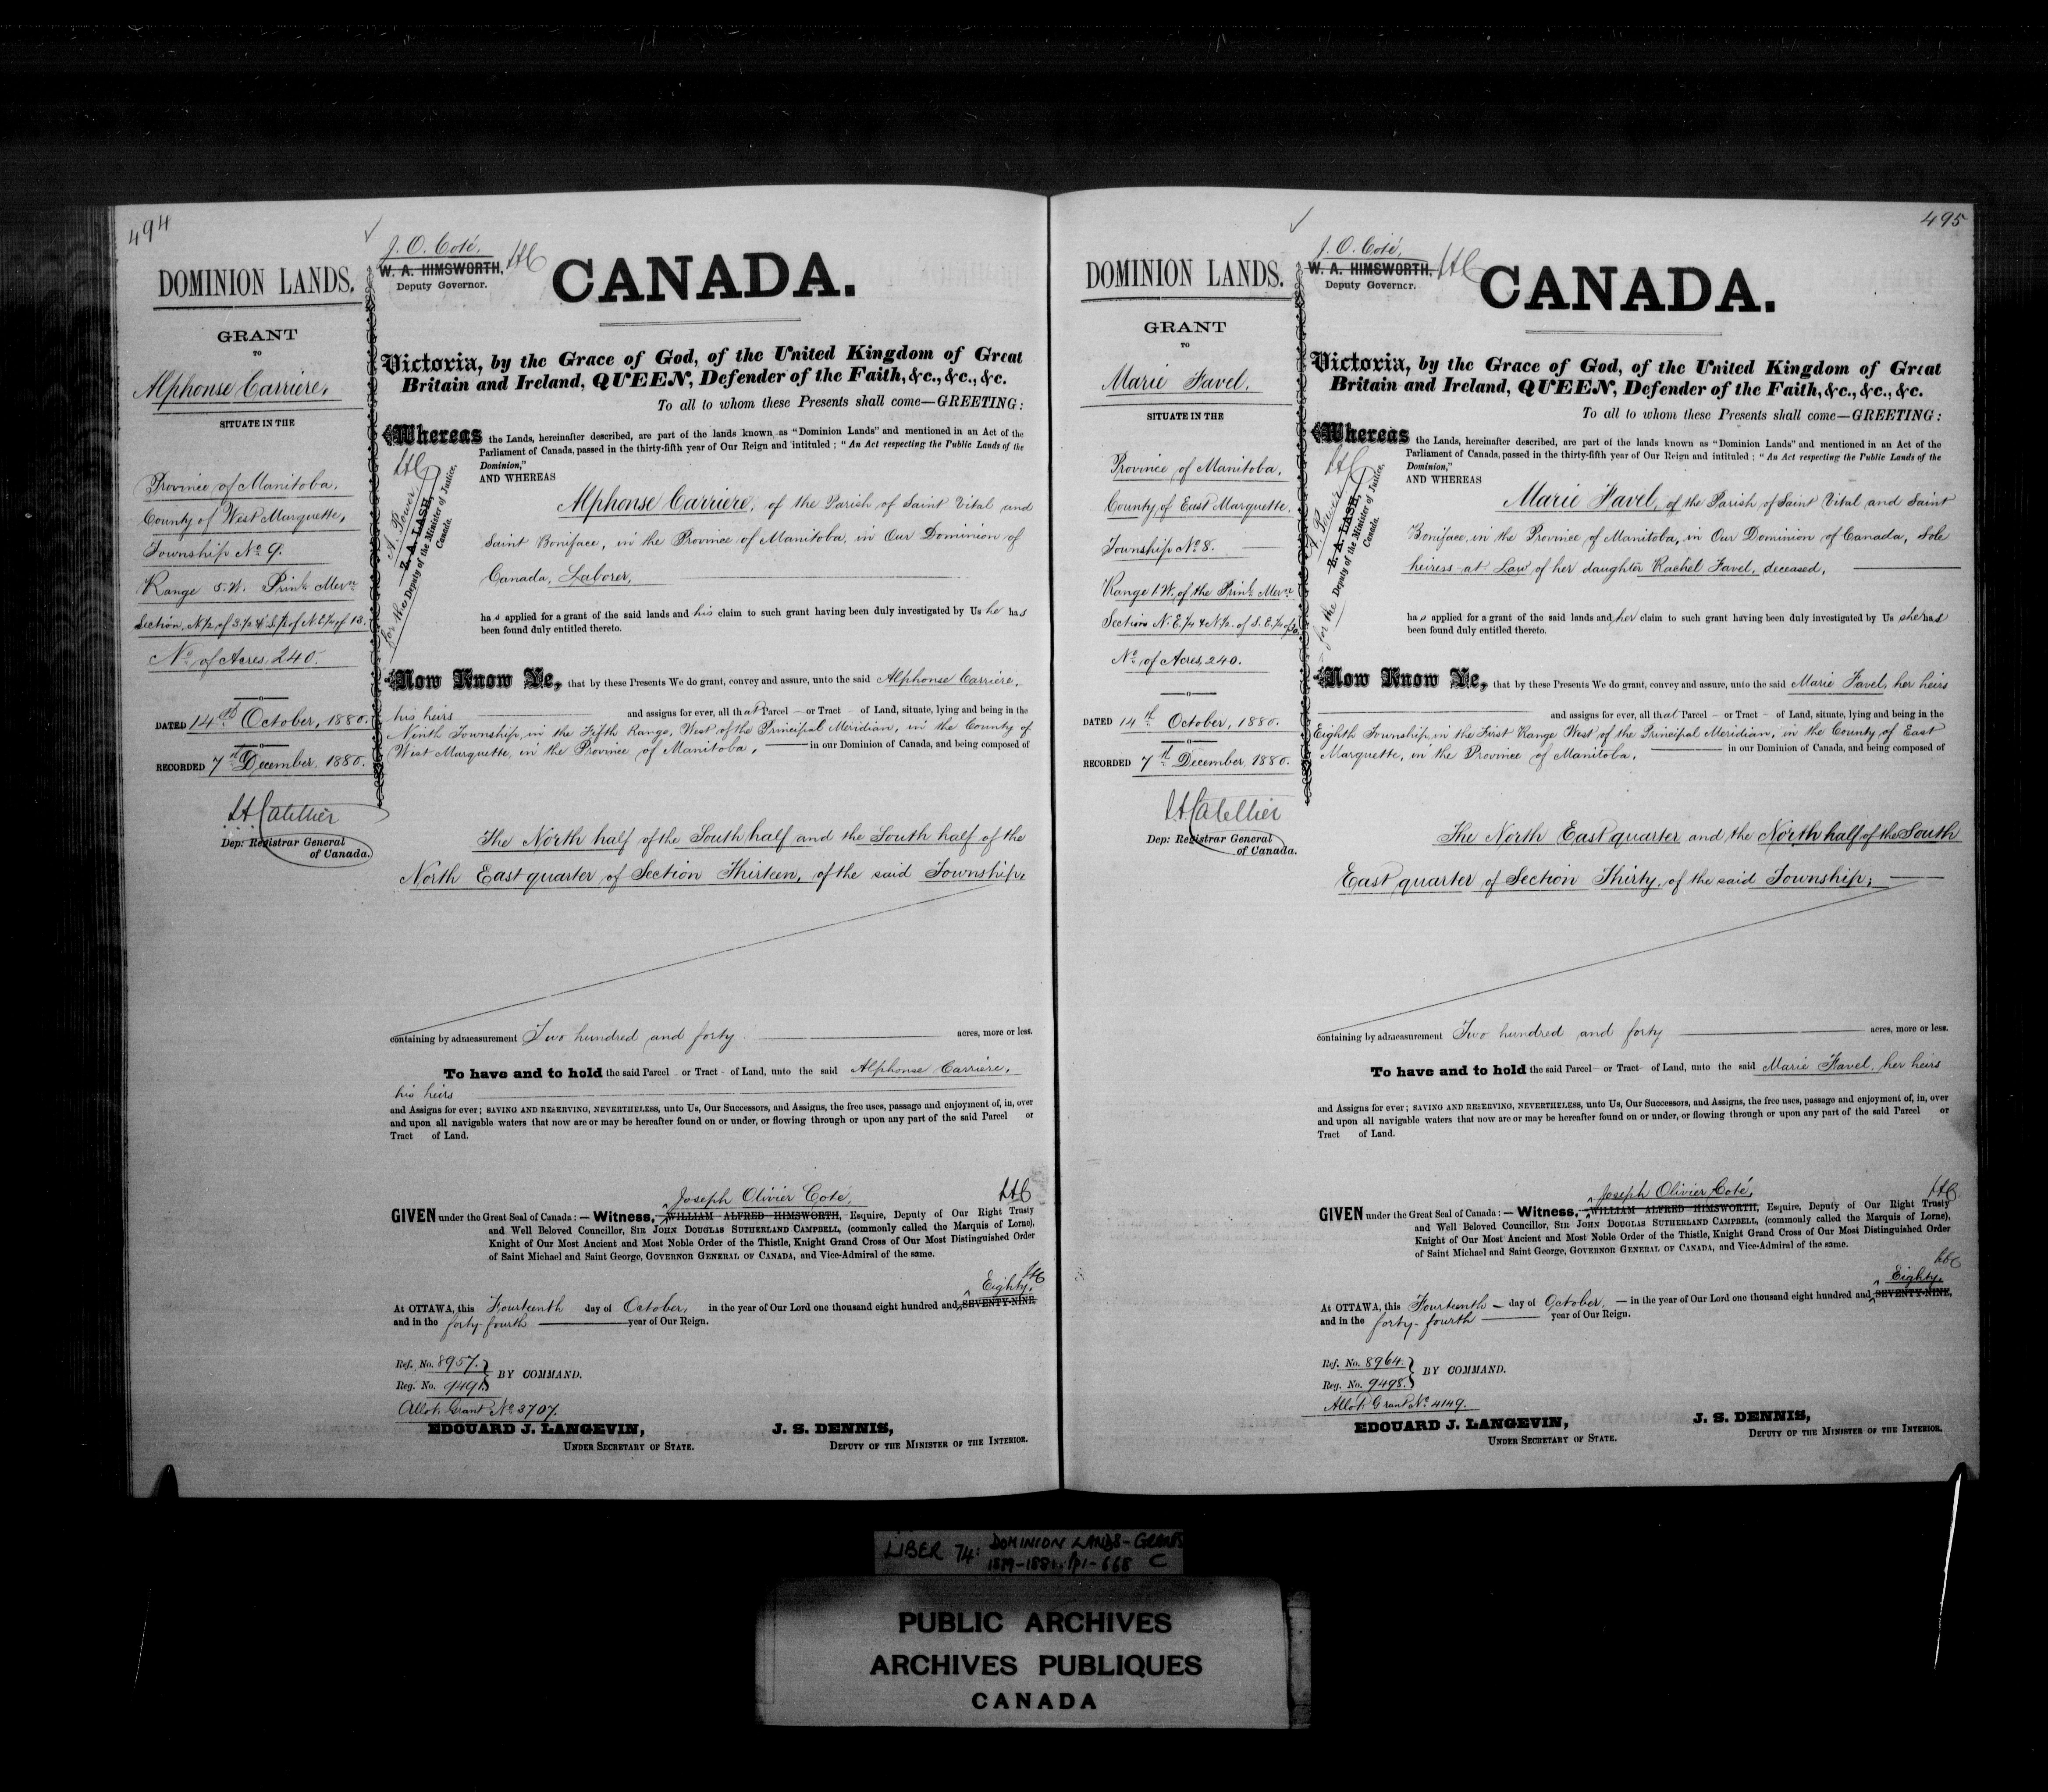 494
DOMINION LANDS.
GRANT
TO
Alphonse Carriere,
SITUATE IN THE
Province of Manitoba,
County of West Marquette,
Township No 9.
Range 5.W. Prin: Mern
Section, N.½ of S.½ & S.½ of N.E.¼ of 13.
No of Acres, 240.
DATED 14th October, 1880.
RECORDED 7th December, 1880.
LACatellier
Dep: Registrar General
of Canada.
J. O. Coté,
W. A. HIMSWORTH, LAC
Deputy Governor.
CANADA.
Victoria, by the Grace of God, of the United Kingdom of Great
Britain and Ireland, QUEEN, Defender of the Faith, &c., &c., &c.
To all to whom these Presents shall come—GREETING:
Whereas the Lands, hereinafter described, are part of the lands known as "Dominion Lands" and mentioned in an Act of the
Parliament of Canada, passed in the thirty-fifth year of Our Reign and intituled; "An Act respecting the Public Lands of the
Dominion,"
AND WHEREAS
LAC
A. Power
Z. A. LASH,
for the Deputy of the Minister of Justice,
Canada.
Alphonse Carriere, of the Parish of Saint Vital and
Saint Boniface, in the Province of Manitoba, in Our Dominion of
Canada, Laborer,
has applied for a grant of the said lands and his claim to such grant having been duly investigated by Us he has
been found duly entitled thereto.
Now Know Ye, that by these Presents We do grant, convey and assure, unto the said Alphonse Carriere,
his heirs and assigns for ever, all that Parcel — or Tract — of Land, situate, lying and being in the
Ninth Township, in the Fifth Range, West of the Principal Meridian, in the County of
West Marquette, in the Province of Manitoba, in our Dominion of Canada, and being composed of
The North half of the South half and the South half of the
North East quarter of Section Thirteen, of the said Township,
containing by admeasurement Two hundred and forty acres, more or less.
To have and to hold the said Parcel - or Tract - of Land, unto the said Alphonse Carriere,
his heirs
and Assigns for ever; SAVING AND RESERVING, NEVERTHELESS, unto Us, Our Successors, and Assigns, the free uses, passage and enjoyment of, in, over
and upon all navigable waters that now are or may be hereafter found on or under, or flowing through or upon any part of the said Parcel or
Tract of Land.
Joseph Olivier Coté, LAC
GIVEN under the Great Seal of Canada:—Witness, WILLIAM ALFRED HIMSWORTH, Esquire, Deputy of Our Right Trusty
and Well Beloved Councillor, SIR JOHN DOUGLAS SUTHERLAND CAMPBELL, (commonly called the Marquis of Lorne),
Knight of Our Most Ancient and Most Noble Order of the Thistle, Knight Grand Cross of Our Most Distinguished Order
of Saint Michael and Saint George, GOVERNOR GENERAL OF CANADA, and Vice-Admiral of the same.
Eighty, LAC
At OTTAWA, this Fourteenth day of October, in the year of Our Lord one thousand eight hundred and SEVENTY-NINE,
and in the forty-fourth year of Our Reign.
Ref. No. 8957.
Reg. No. 9491. } BY COMMAND.
Allot. Grant No 3707.
EDOUARD J. LANGEVIN,
UNDER SECRETARY OF STATE.
J. S. DENNIS,
DEPUTY OF THE MINISTER OF THE INTERIOR.
495
DOMINION LANDS.
GRANT
TO
Marie Favel,
SITUATE IN THE
Province of Manitoba,
County of East Marquette,
Township No 8.
Range 1.W. of the Prin: Mern
Section N.E.¼ & N.½ of S.E.¼ of 30
No of Acres, 240.
DATED 14th October, 1880.
RECORDED 7th December, 1880.
LACatellier
Dep: Registrar General
of Canada.
J. O. Coté,
W. A. HIMSWORTH, LAC
Deputy Governor.
CANADA.
Victoria, by the Grace of God, of the United Kingdom of Great
Britain and Ireland, QUEEN, Defender of the Faith, &c., &c., &c.
To all to whom these Presents shall come—GREETING:
Whereas the Lands, hereinafter described, are part of the lands known as "Dominion Lands" and mentioned in an Act of the
Parliament of Canada, passed in the thirty-fifth year of Our Reign and intituled; "An Act respecting the Public Lands of the
Dominion,"
AND WHEREAS
LAC
A. Power
Z. A. LASH,
for the Deputy of the Minister of Justice,
Canada.
Marie Favel, of the Parish of Saint Vital and Saint
Boniface, in the Province of Manitoba, in Our Dominion of Canada, Sole
heiress-at-Law of her daughter Rachel Favel, deceased,
has applied for a grant of the said lands and her claim to such grant having been duly investigated by Us she has
been found duly entitled thereto.
Now Know Ye, that by these Presents We do grant, convey and assure, unto the said Marie Favel, her heirs
and assigns for ever, all that Parcel — or Tract — of Land, situate, lying and being in the
Eighth Township, in the First Range West of the Principal Meridian, in the County of East
Marquette, in the Province of Manitoba, in our Dominion of Canada, and being composed of
The North East quarter and the North half of the South
East quarter of Section Thirty, of the said Township;
containing by admeasurement Two hundred and forty acres, more or less.
To have and to hold the said Parcel - or Tract - of Land, unto the said Marie Favel, her heirs
and Assigns for ever; SAVING AND RESERVING, NEVERTHELESS, unto Us, Our Successors, and Assigns, the free uses, passage and enjoyment of, in, over
and upon all navigable waters that now are or may be hereafter found on or under, or flowing through or upon any part of the said Parcel or
Tract of Land.
Joseph Olivier Coté, LAC
GIVEN under the Great Seal of Canada:—Witness, WILLIAM ALFRED HIMSWORTH, Esquire, Deputy of Our Right Trusty
and Well Beloved Councillor, SIR JOHN DOUGLAS SUTHERLAND CAMPBELL, (commonly called the Marquis of Lorne),
Knight of Our Most Ancient and Most Noble Order of the Thistle, Knight Grand Cross of Our Most Distinguished Order
of Saint Michael and Saint George, GOVERNOR GENERAL OF CANADA, and Vice-Admiral of the same.
Eighty, LAC
At OTTAWA, this Fourteenth — day of October, — in the year of Our Lord one thousand eight hundred and SEVENTY-NINE,
and in the forty-fourth year of Our Reign.
Ref. No. 8964.
Reg. No. 9498. } BY COMMAND.
Allot. Grant No 4149.
EDOUARD J. LANGEVIN,
UNDER SECRETARY OF STATE.
J. S. DENNIS,
DEPUTY OF THE MINISTER OF THE INTERIOR.
LIBER 74: DOMINION LANDS-GRANTS
1879-1881. Pp1-668 C
PUBLIC ARCHIVES
ARCHIVES PUBLIQUES
CANADA